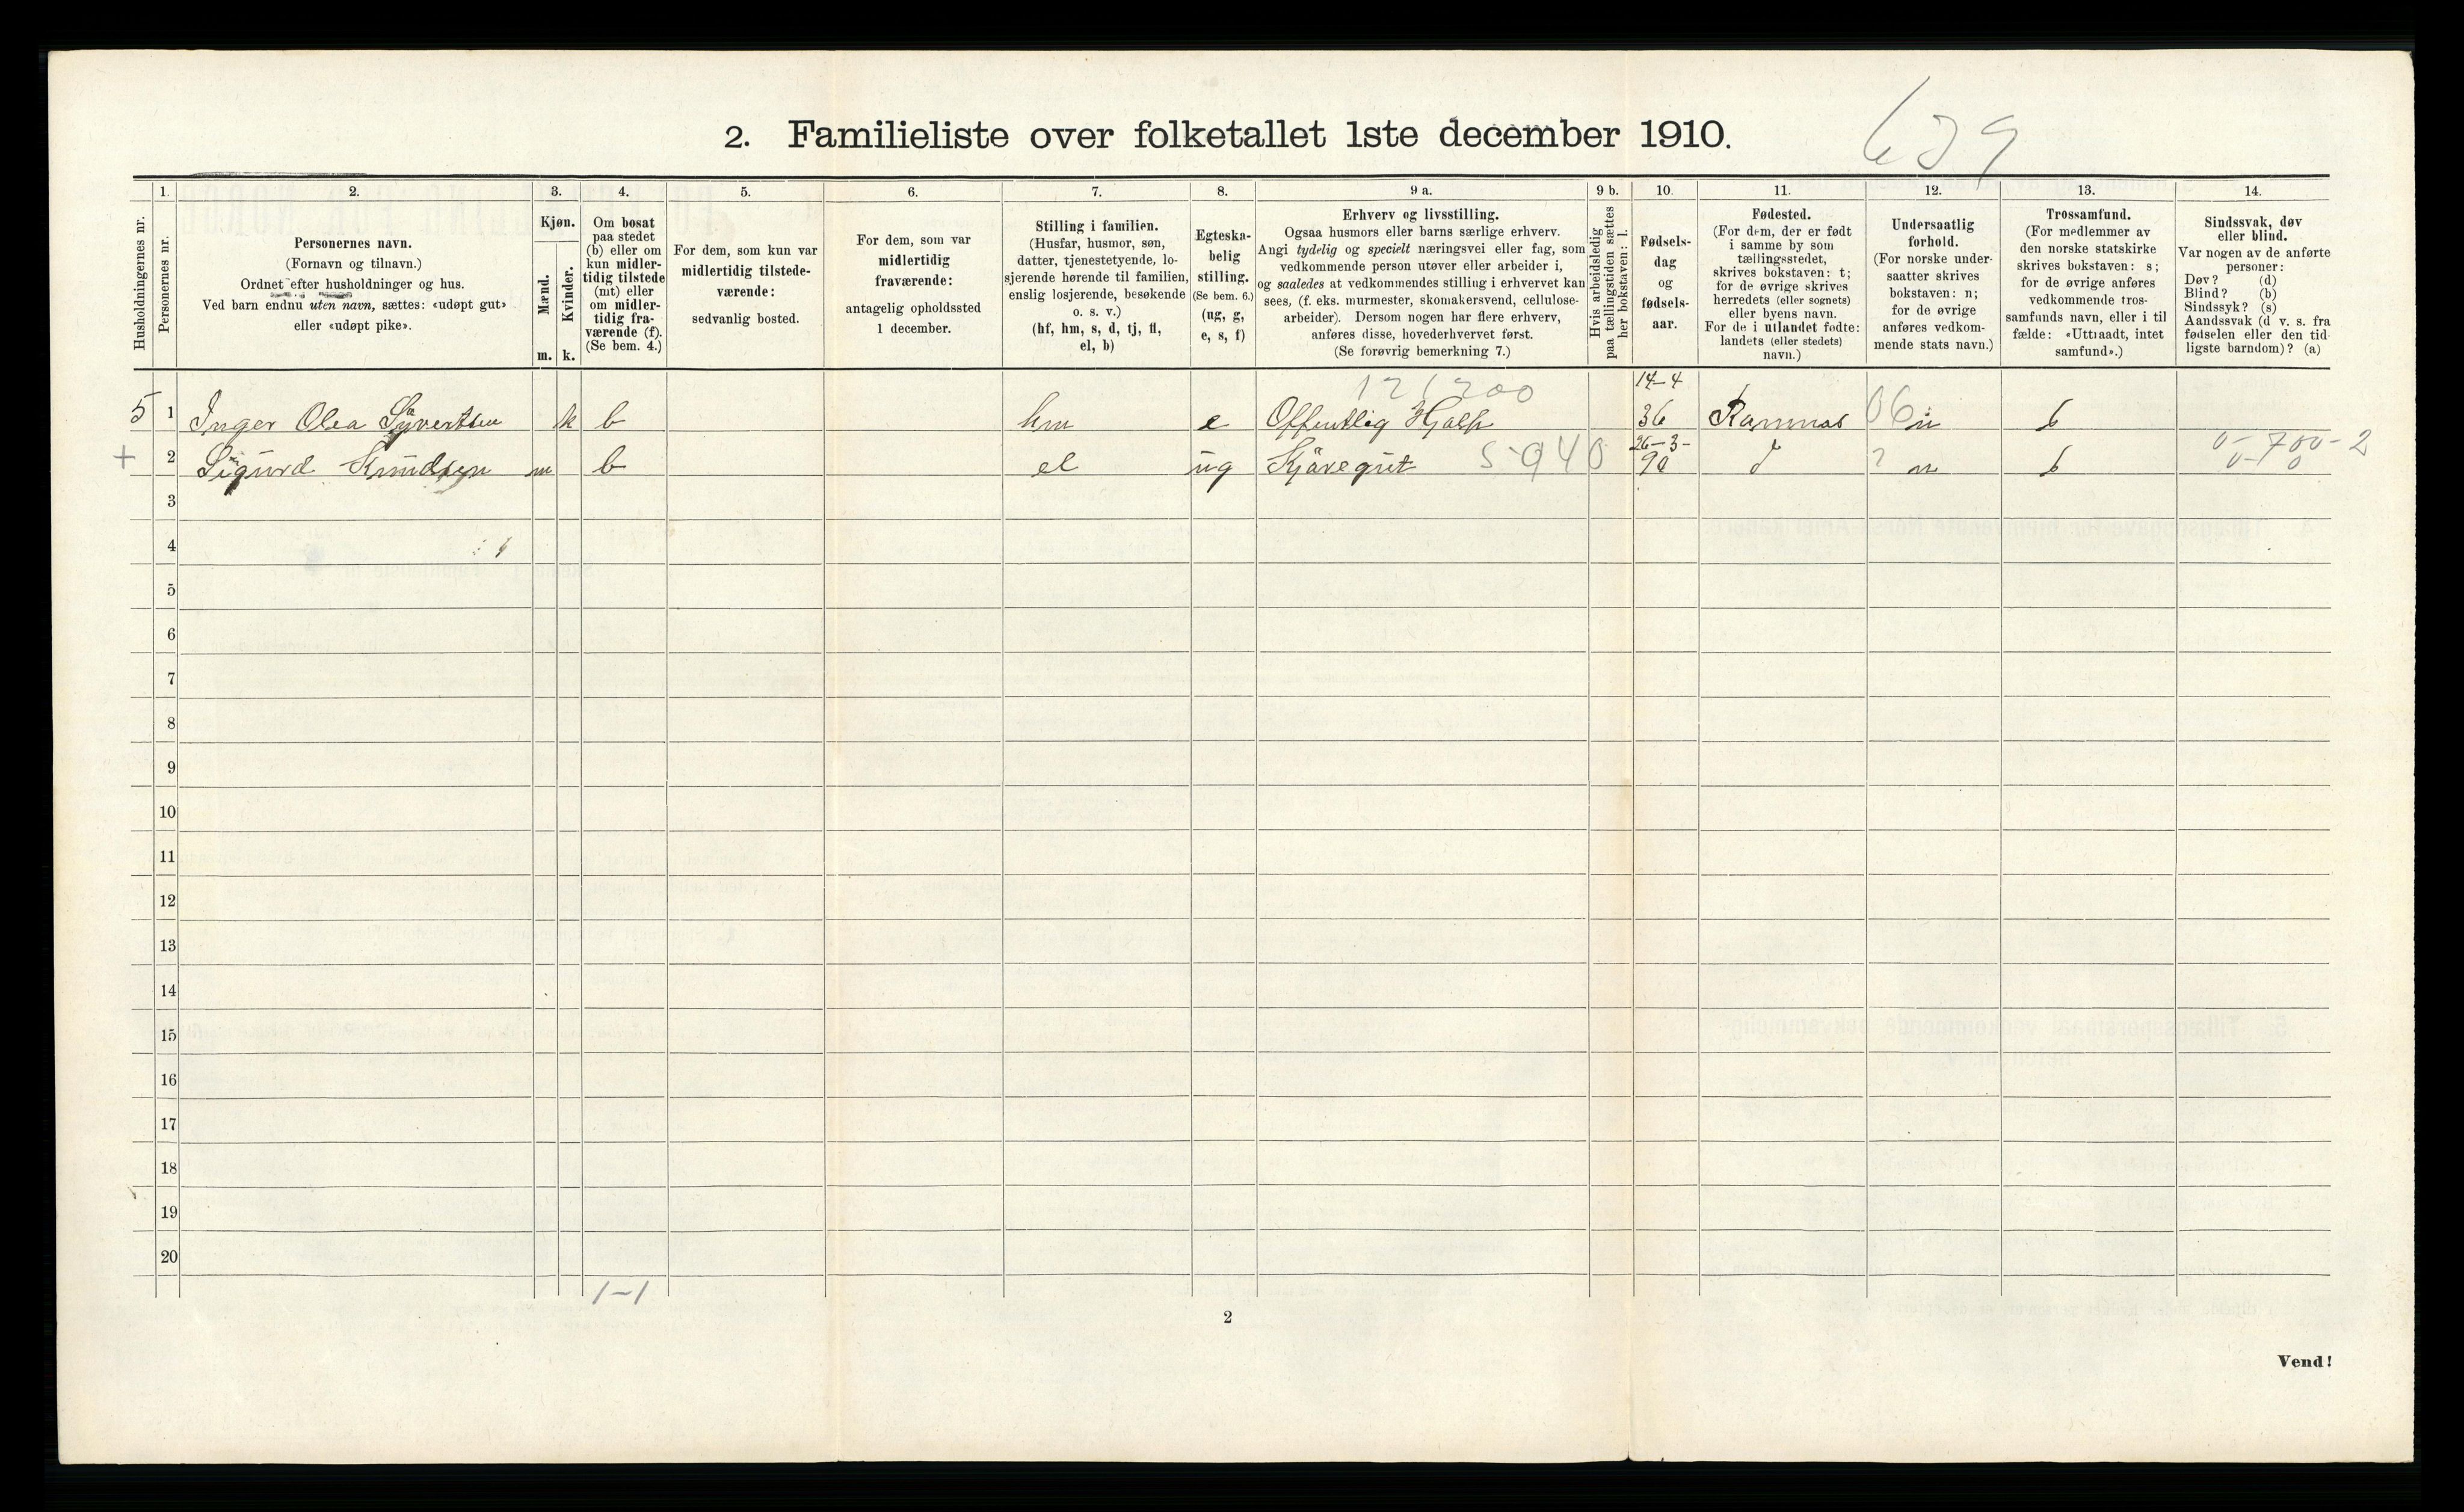 2. Familieliste over folketallet 1ste december 1910.
639
Husholdningernes nr.
1.
Personernes nr.
2.
Personernes navn.
(Fornavn og tilnavn.)
Ordnet efter husholdninger og hus.
Ved barn endnu uten navn, sættes: «udøpt gut»
eller «udøpt pike».
3.
Kjøn.
Mænd.
m.
Kvinder.
k.
4.
Om bosat
paa stedet
(b) eller om
kun midler-
tidig tilstede
(mt) eller
om midler-
tidig fra-
værende (f).
(Se bem. 4.)
5.
For dem, som kun var
midlertidig tilstede-
værende:
sedvanlig bosted.
6.
For dem, som var
midlertidig
fraværende:
antagelig opholdssted
1 december.
7.
Stilling i familien.
(Husfar, husmor, søn,
datter, tjenestetyende, lo-
sjerende hørende til familien,
enslig losjerende, besøkende
o. s. v.)
(hf, hm, s, d, tj, fl,
el, b)
8.
Egteska-
belig
stilling.
(Se bem. 6.)
(ug, g,
e, s, f)
9 a.
Erhverv og livsstilling.
Ogsaa husmors eller barns særlige erhverv.
Angi tydelig og specielt næringsvei eller fag, som
vedkommende person utøver eller arbeider i,
og saaledes at vedkommendes stilling i erhvervet kan
sees, (f. eks. murmester, skomakersvend, cellulose-
arbeider). Dersom nogen har flere erhverv,
anføres disse, hovederhvervet først.
(Se forøvrig bemerkning 7.)
9 b.
Hvis arbeidsledig
paa tællingstiden sættes
her bokstaven: l.
10.
Fødsels-
dag
og
fødsels-
aar.
11.
Fødested.
(For dem, der er født
i samme by som
tællingsstedet,
skrives bokstaven: t;
for de øvrige skrives
herredets (eller sognets)
eller byens navn.
For de i utlandet fødte:
landets (eller stedets)
navn.)
12.
Undersaatlig
forhold.
(For norske under-
saatter skrives
bokstaven: n;
for de øvrige
anføres vedkom-
mende stats navn.)
13.
Trossamfund.
(For medlemmer av
den norske statskirke
skrives bokstaven: s;
for de øvrige anføres
vedkommende tros-
samfunds navn, eller i til
fælde: «Uttraadt, intet
samfund».)
14.
Sindssvak, døv
eller blind.
Var nogen av de anførte
personer:
Døv? (d)
Blind? (b)
Sindssyk? (s)
Aandssvak (d v. s. fra
fødselen eller den tid-
ligste barndom)? (a)
5 1 Inger Olea Syvertsen k b hm e Offentlig Hjælp 14-4 36 Ramnes 06 n s
+ 2 Sigurd Knudsen m b el ug Kjöregut 5-940 26-3-90 t n s
3
4
5
6
7
8
9
10
11
12
13
14
15
16
17
18
19
20
1-1
2
Vend!